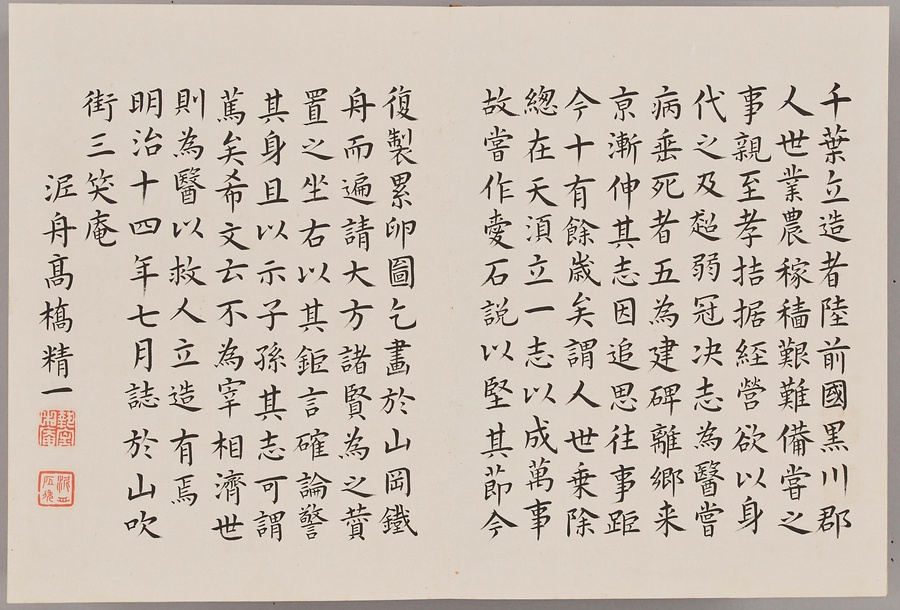 千葉立造者陸前國黒川郡
人世業農稼穡艱難備甞之
事親至孝拮据經營欲以身
代之及超弱冠决志為醫甞
病垂死者五為建碑離鄉来
京漸伸其志因追思往事距
今十有餘歳矣謂人世乗除
總在天須立一志以成萬事
故甞作愛石説以堅其莭今
復製累卵圖乞畫於山岡鐵
舟而遍請大方諸賢為之賛
置之坐右以其鉅言確論警
其身且以示子孫其志可謂
篤矣希文云不為宰相濟世
則為醫以救人立造有焉
明治十四年七月誌於山吹
街三笑庵
泥舟髙橋精一